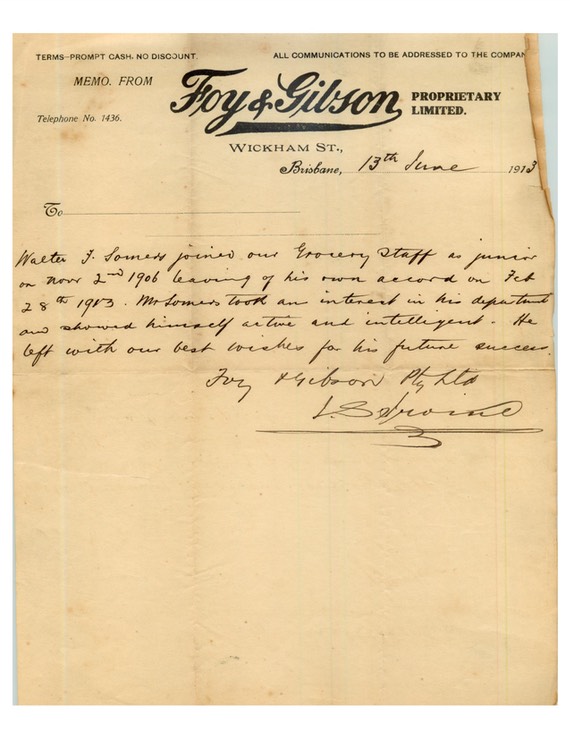 TERMS-PROMPT CASH. NO DISCOUNT.
ALL COMMUNICATIONS TO BE ADDRESSED TO THE COMPAN
MEMO. FROM
Foy & Gibson PROPRIETARY LIMITED.
Telephone No. 1436.
WICKHAM ST.,
Brisbane, 13th June 1913
To
Walter F. Somers joined our Grocery Staff as junior
on Novr 2nd 1906 leaving of his own accord on Feb
28th 1913. Mr Somers took an interest in his department
and showed himself active and intelligent. He
left with our best wishes for his future success.
Foy & Gibson Pty Ltd
Irvine